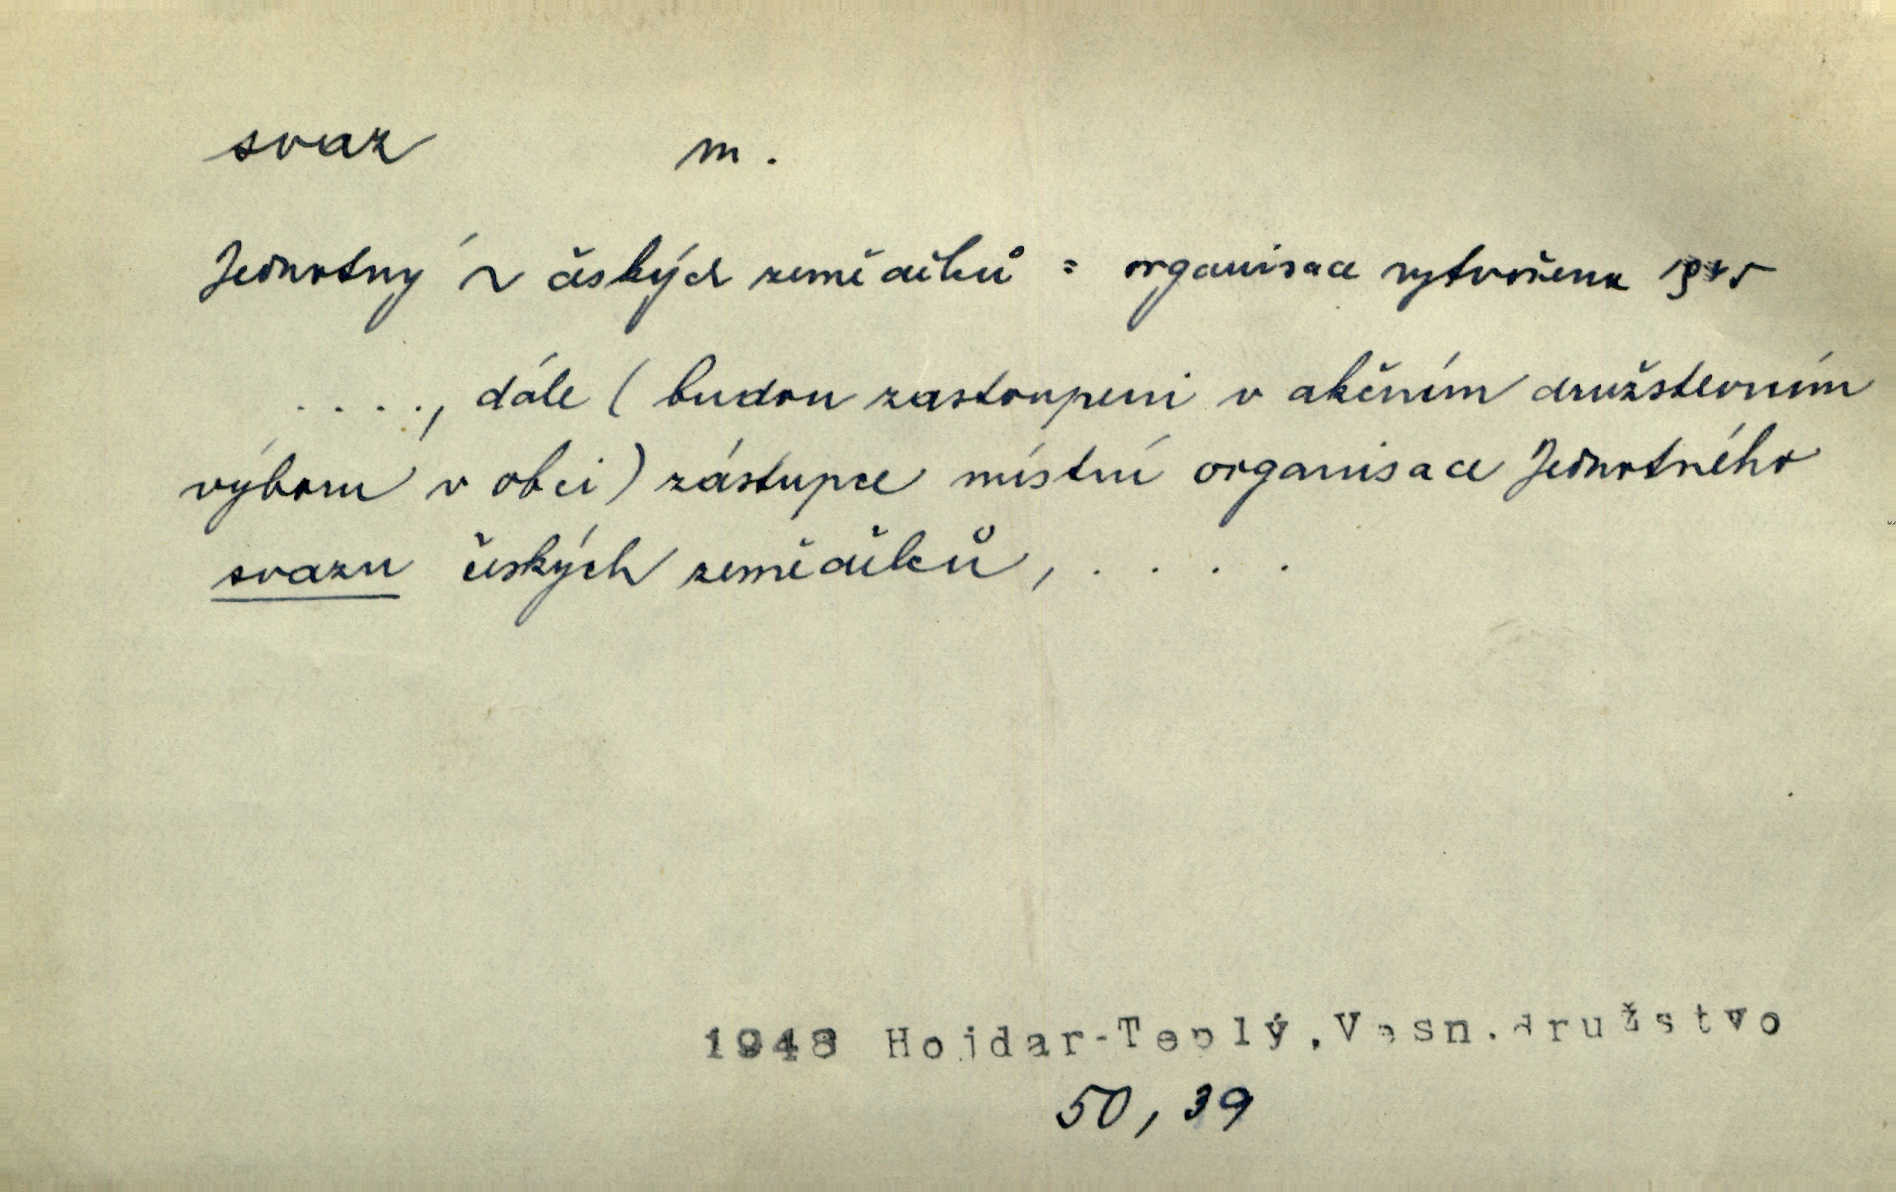 svaz m.
Jednotný ~ českých zemědělců = organisace vytvořená 1945
...., dále (budou zastoupeni v akčním družstevním
výboru v obci) zástupce místní organisace Jednotného
svazu českých zemědělců, ....
1948 Hojdar-Teplý, Vesn. družstvo
50, 39